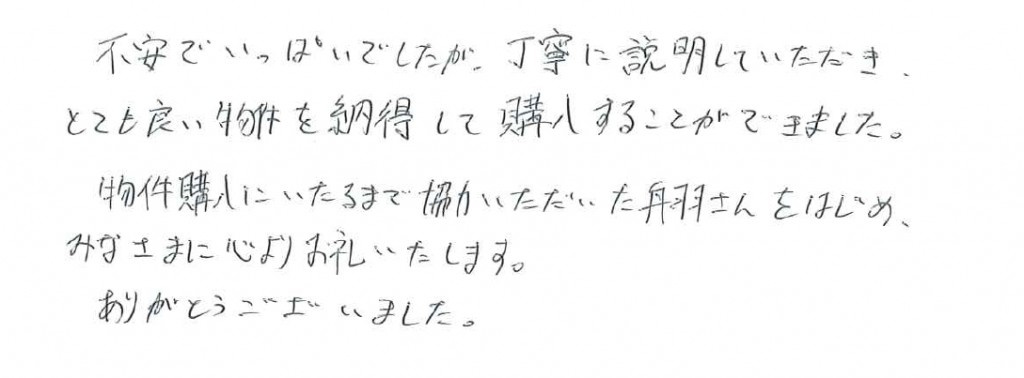 不安でいっぱいでしたが、丁寧に説明していただき、
とても良い物件を納得して購入することができました。
物件購入にいたるまで協力いただいた丹羽さんをはじめ、
みなさまに心よりお礼いたします。
ありがとうございました。